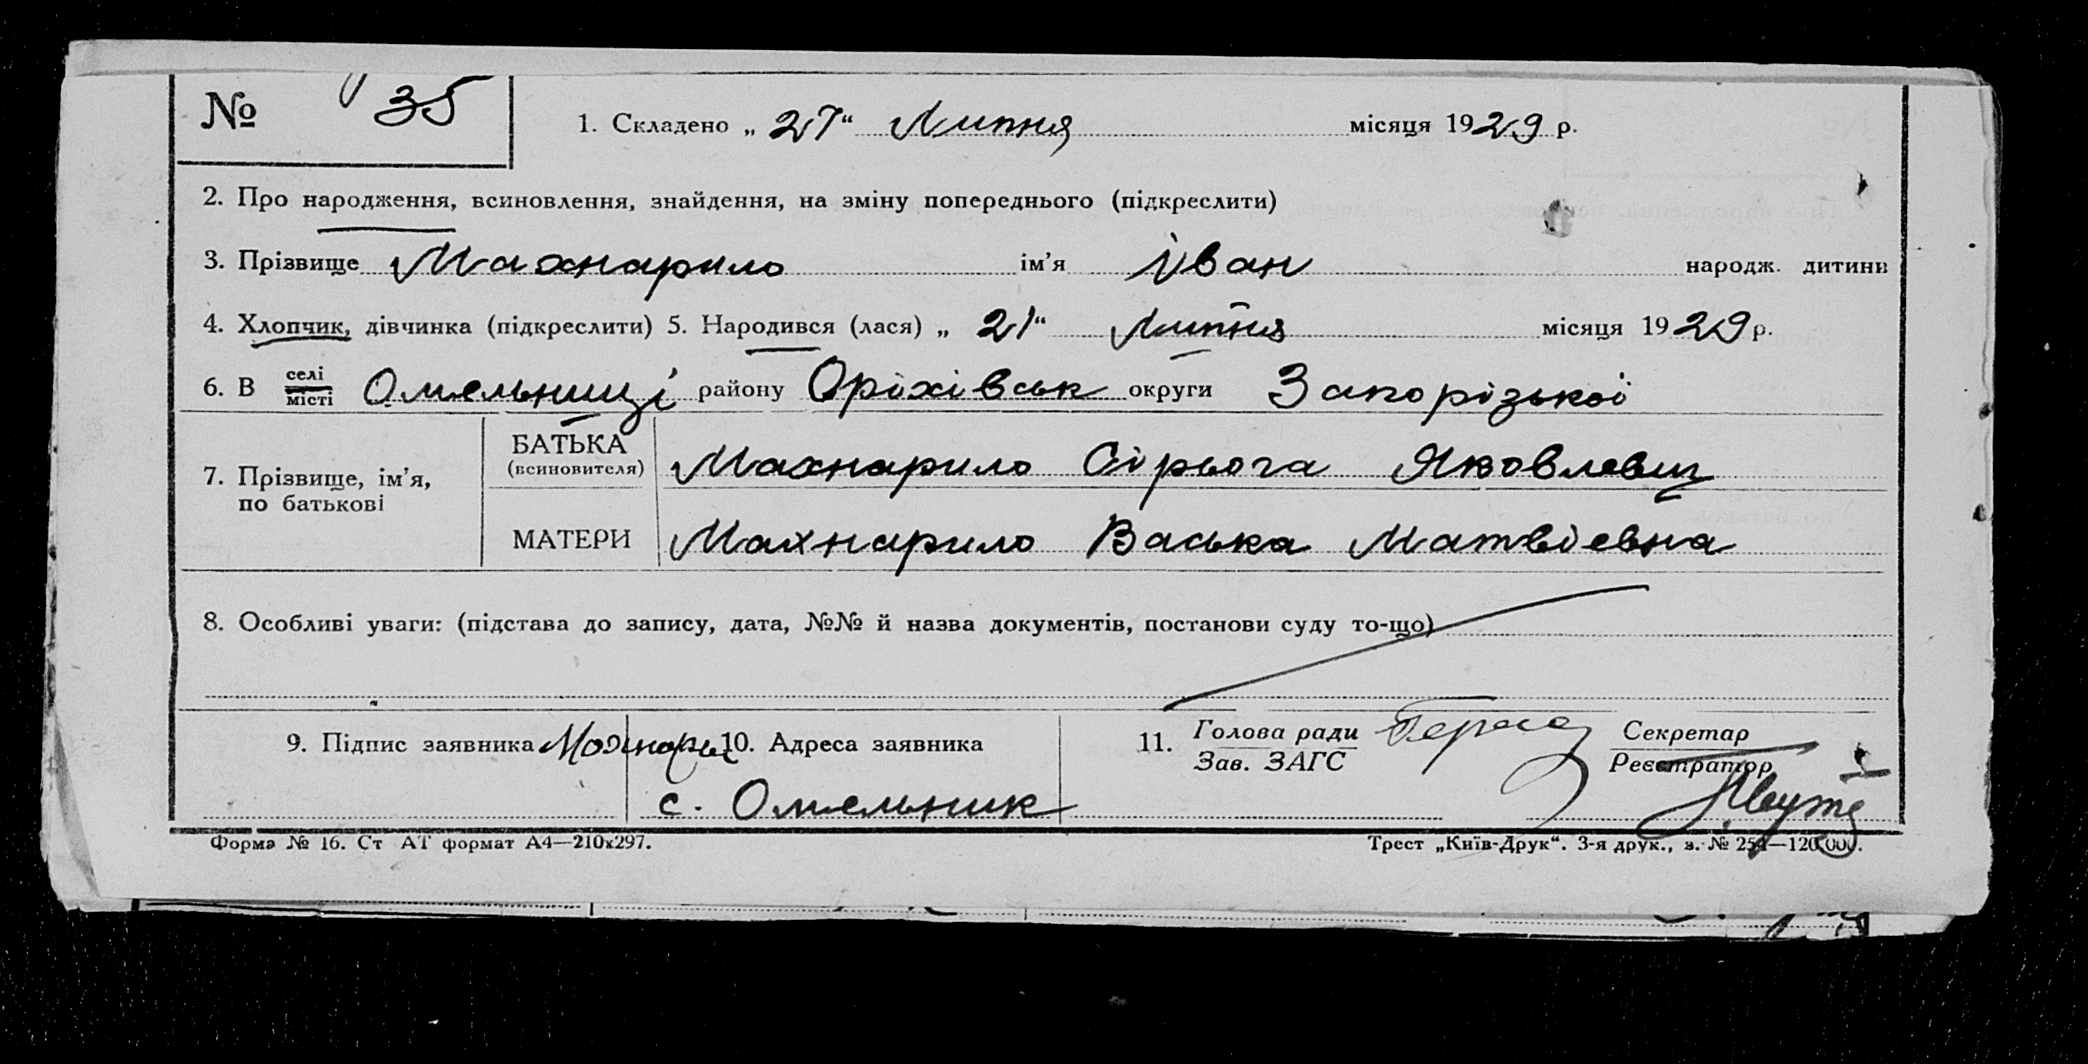 № 35
1. Складено „27“ Липня місяця 1929 р.
2. Про народження, всиновлення, знайдення, на зміну попереднього (підкреслити)
3. Прізвище Махнарило ім'я Іван народж. дитини
4. Хлопчик, дівчинка (підкреслити) 5. Народився (лася) „21“ Липня місяця 1929 р.
6. В селі
місті Омельниці району Оріхівськ округи Запорізької
7. Прізвище, ім'я,
по батькові
БАТЬКА
(всиновителя) Махнарило Сірьога Яковлевич
МАТЕРИ Махнарило Васька Матвієвна
8. Особливі уваги: (підстава до запису, дата, №№ й назва документів, постанови суду то-що)
9. Підпис заявника
10. Адреса заявника
с. Омельник
11. Голова ради
Зав. ЗАГС
Секретар
Реєстратор
Форма № 16. Ст АТ формат А4—210х297.
Трест „Київ-Друк“. 3-я друк., з. № 254—120.000.